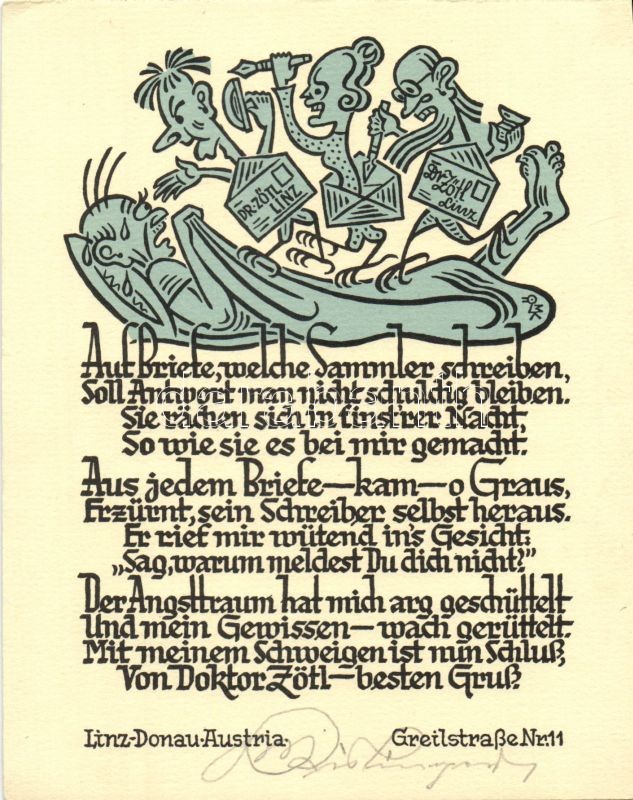 DR·ZÖTL
LINZ
Dr. Zötl
Linz
Auf Briefe, welche Sammler schreiben,
Soll Antwort man nicht schuldig bleiben.
Sie rächen sich in finst'rer Nacht,
So wie sie es bei mir gemacht.
Aus jedem Briefe—kam—o Graus,
Erzürnt, sein Schreiber selbst heraus.
Er rief mir wütend in's Gesicht:
„Sag, warum meldest Du dich nicht?"
Der Angsttraum hat mich arg geschüttelt
Und mein Gewissen—wach gerüttelt.
Mit meinem Schweigen ist nun Schluß,
Von Doktor Zötl—besten Gruß.
Linz-Donau-Austria· Greilstraße Nr. 11